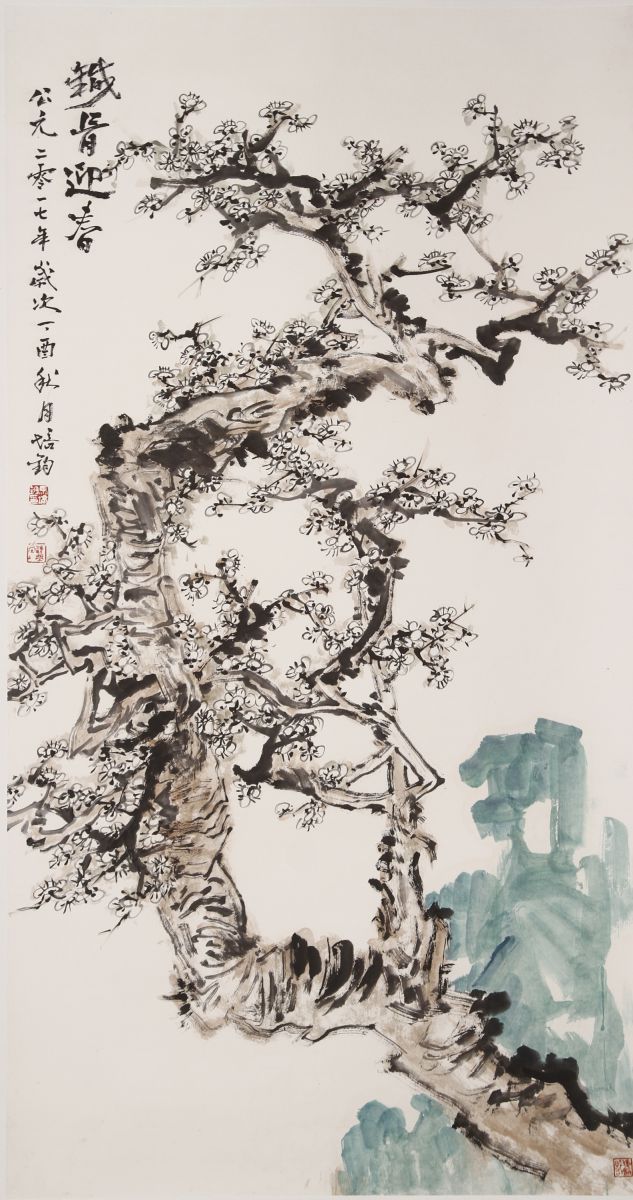 鐵骨迎春
公元二零一七年歲次丁酉秋月培鈞